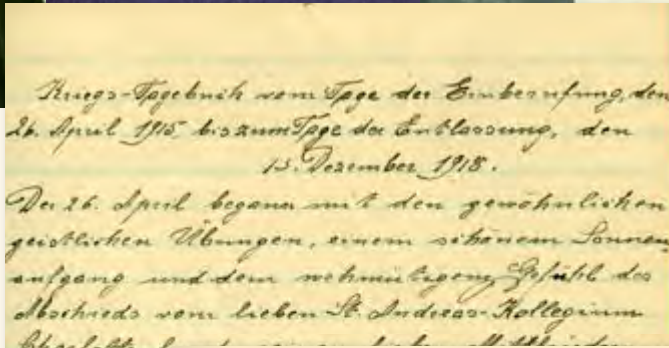 Kriegs-Tagebuch vom Tage der Einberufung, den
26. April 1915, bis zum Tage der Entlassung, den
13. Dezember 1918.
Der 26. April begann mit den gewöhnlichen
geistlichen Übungen, einem schönem Sonnen-
aufgang und dem wehmütigem Gefühl des
Abschieds vom lieben St. Andreas-Kollegium